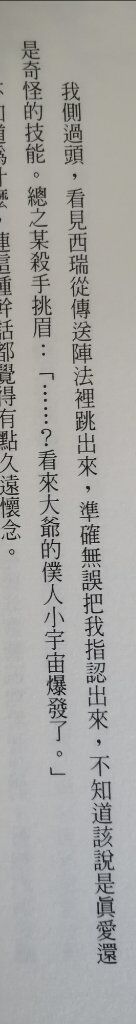 我側過頭，看見西瑞從傳送陣法裡跳出來，準確無誤把我指認出來，不知道該說是真愛還
是奇怪的技能。總之某殺手挑眉：「……？看來大爺的僕人小宇宙爆發了。」
不知道為什麼，連這種幹話都覺得有點久遠懷念。